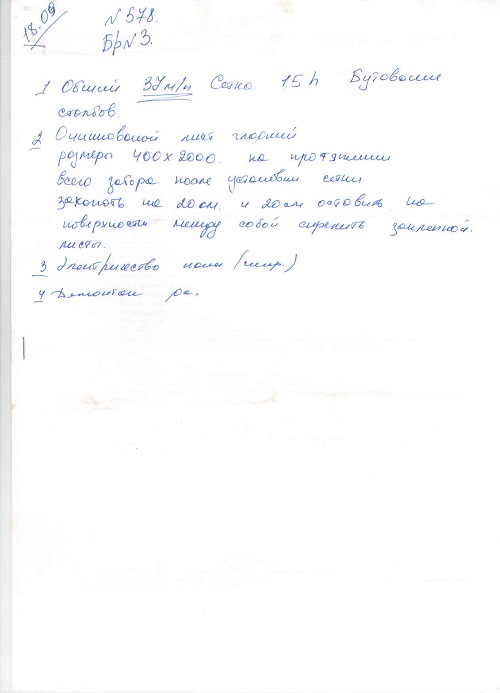 18.09
N 578.
Бр N 3.
1 Общий 37 м/п Сетка 15 h Бутование
столбов.
2 Оцинкованой лист гладкий
размеры 400х2000. на протяжении
всего забора после установки сетки
закопать на 20 см. и 20 см оставить на
поверхности между собой скрепить заклепкой.
листы.
3 Электричество
4 Демонтаж